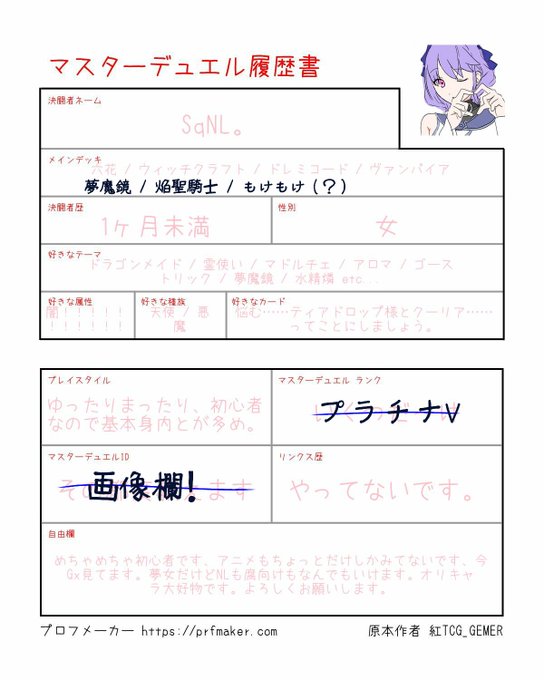 マスターデュエル履歴書
決闘者ネーム
SqNL。
メインデッキ
六花 / ウィッチクラフト / ドレミコード / ヴァンパイア
夢魔鏡 / 焔聖騎士 / もけもけ (？)
決闘者歴
1ヶ月未満
性別
女
好きなテーマ
ドラゴンメイド / 霊使い / マドルチェ / アロマ / ゴース
トリック / 夢魔鏡 / 水精鱗 etc...
好きな属性
闇！！！！！
！！！！！！
好きな種族
天使 / 悪
魔
好きなカード
悩む……ティアドロップ様とクーリア……
ってことにしましょう。
プレイスタイル
ゆったりまったり、初心者
なので基本身内とが多め。
マスターデュエル ランク
プラチナV
マスターデュエルID
画像欄!
リンクス歴
やってないです。
自由欄
めちゃめちゃ初心者です、アニメもちょっとだけしかみてないです、今
Gx見てます。夢女だけどNLも腐向けもなんでもいけます。オリキャ
ラ大好物です。よろしくお願いします。
プロフメーカー https://prfmaker.com
原本作者 紅TCG_GEMER